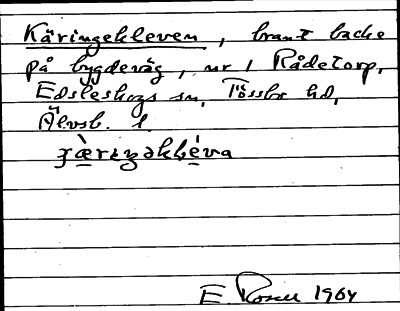 Käringekleven, brant backe
på bygdeväg, nr 1 Rådetorp,
Edsleskogs sn, Tössbo hd,
Älvsb. l.
E Rosell 1964